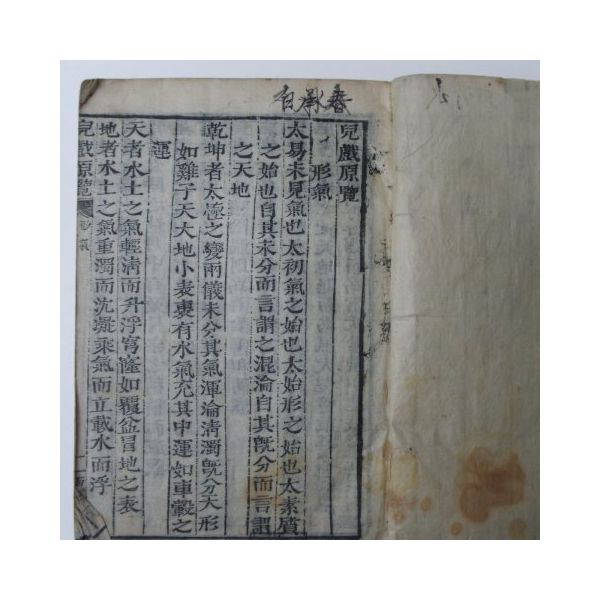 白承春
兒戲原覽
形氣
太易未見氣也太初氣之始也太始形之始也太素質
之始也自其未分而言謂之混淪自其旣分而言謂
之天地
乾坤者太極之變兩儀未分其氣渾淪淸濁旣分大形
如雞子天大地小表裏有水氣充其中運如車轂之
運
天者水土之氣輕淸而升浮穹窿如覆盆冒地之表
地者水土之氣重濁而沈凝乘氣而立載水而浮
兒戲原覽
形氣
一